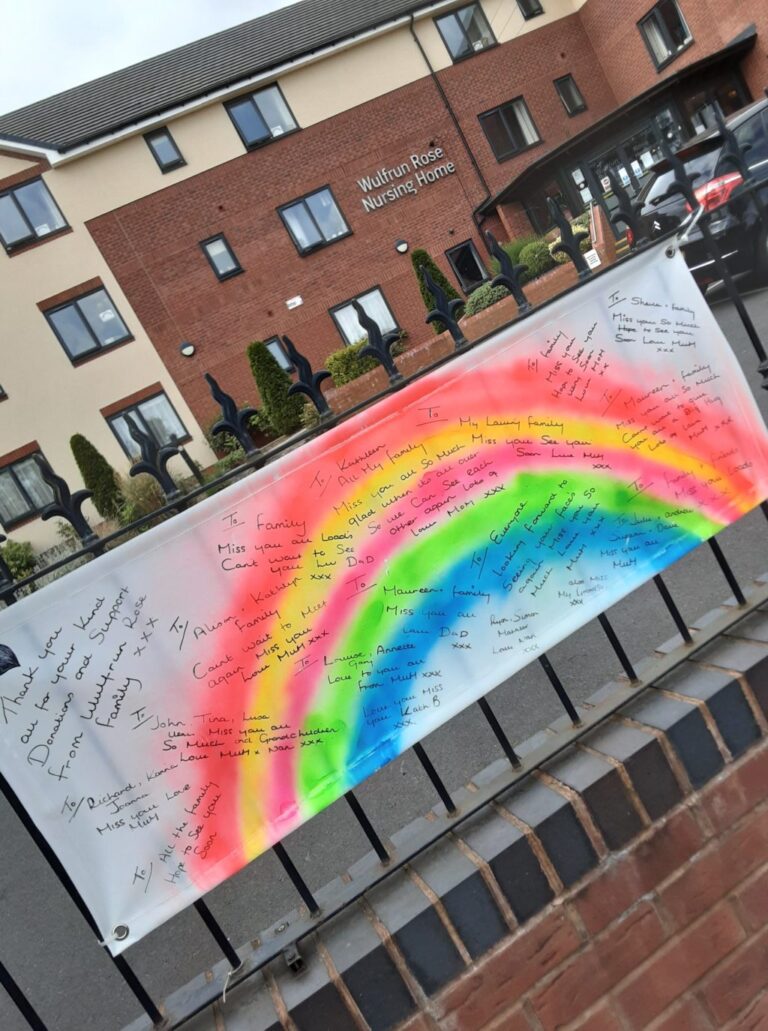 Wulfrun Rose
Nursing Home
Thank you
all for your kind
Donations and Support
from Wulfrun Rose
Family xxx
To Richard, Karina
Joanna
Miss you Love
Mum
To All the family
Hope to See you
Soon
To John, Tina, Lisa
Miss you all
So Much and Grandchildren
Love Mum x Nan xxx
To Family
Miss you all Loads
Cant want to See
you Luv DaD
xxx
To Alison, Kathryn
Family
Cant want to Meet
again Miss you
Love MuM xxx
To Louise, Annette
Gary
Love to you all
from MuM xxx
Love you Miss
you Kath B
xxx
To Kathleen
All My Family
Miss you all So Much
glad when its all over
So we Can See each
other again Lots of
Love MuM xxx
To Maureen + family
Miss you all
Luv DaD
xxx
To My Loving Family
Miss you See you
Soon Love MuM
xxx
To Everyone
Looking forward to
Seeing your faces
again Miss you So
Much Love you
MuM xxx
Ryan, Simon
Love Nan
xxx
also Miss
xxx
To family
Miss you
Hope to See you
Very Soon
Love MuM
xxx
To Sheila + Family
Miss you So Much
Hope to See you
Soon Love MuM
xxx
To Maureen + family
Miss you all So Much
Cant want to give
you all a Big Hug
Lots of Love
MuM xxx
Miss you Loads
To Julie + andrew
Susan Dave
Miss you all
MuM